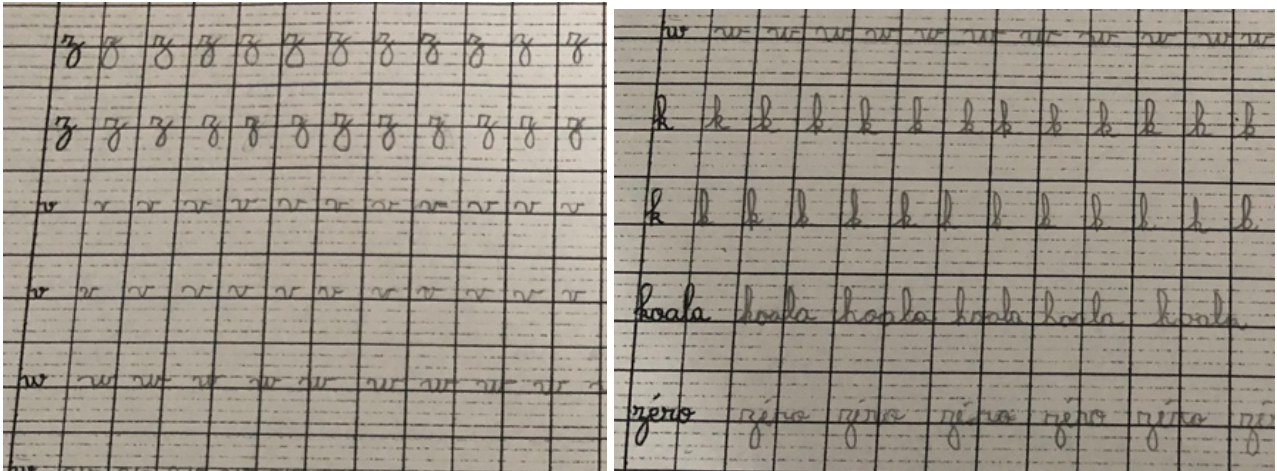 z z z z z z z z z z z z
z z z z z z z z z z z z
v v v v v v v v v v v v
v v v v v v v v v v v v
w w w w w w w w w w
w w w w w w w w w w w w
k k k k k k k k k k k k k
k k k k k k k k k k k k k
koala koala koala koala koala koala
zéro zéro zéro zéro zéro zéro zé